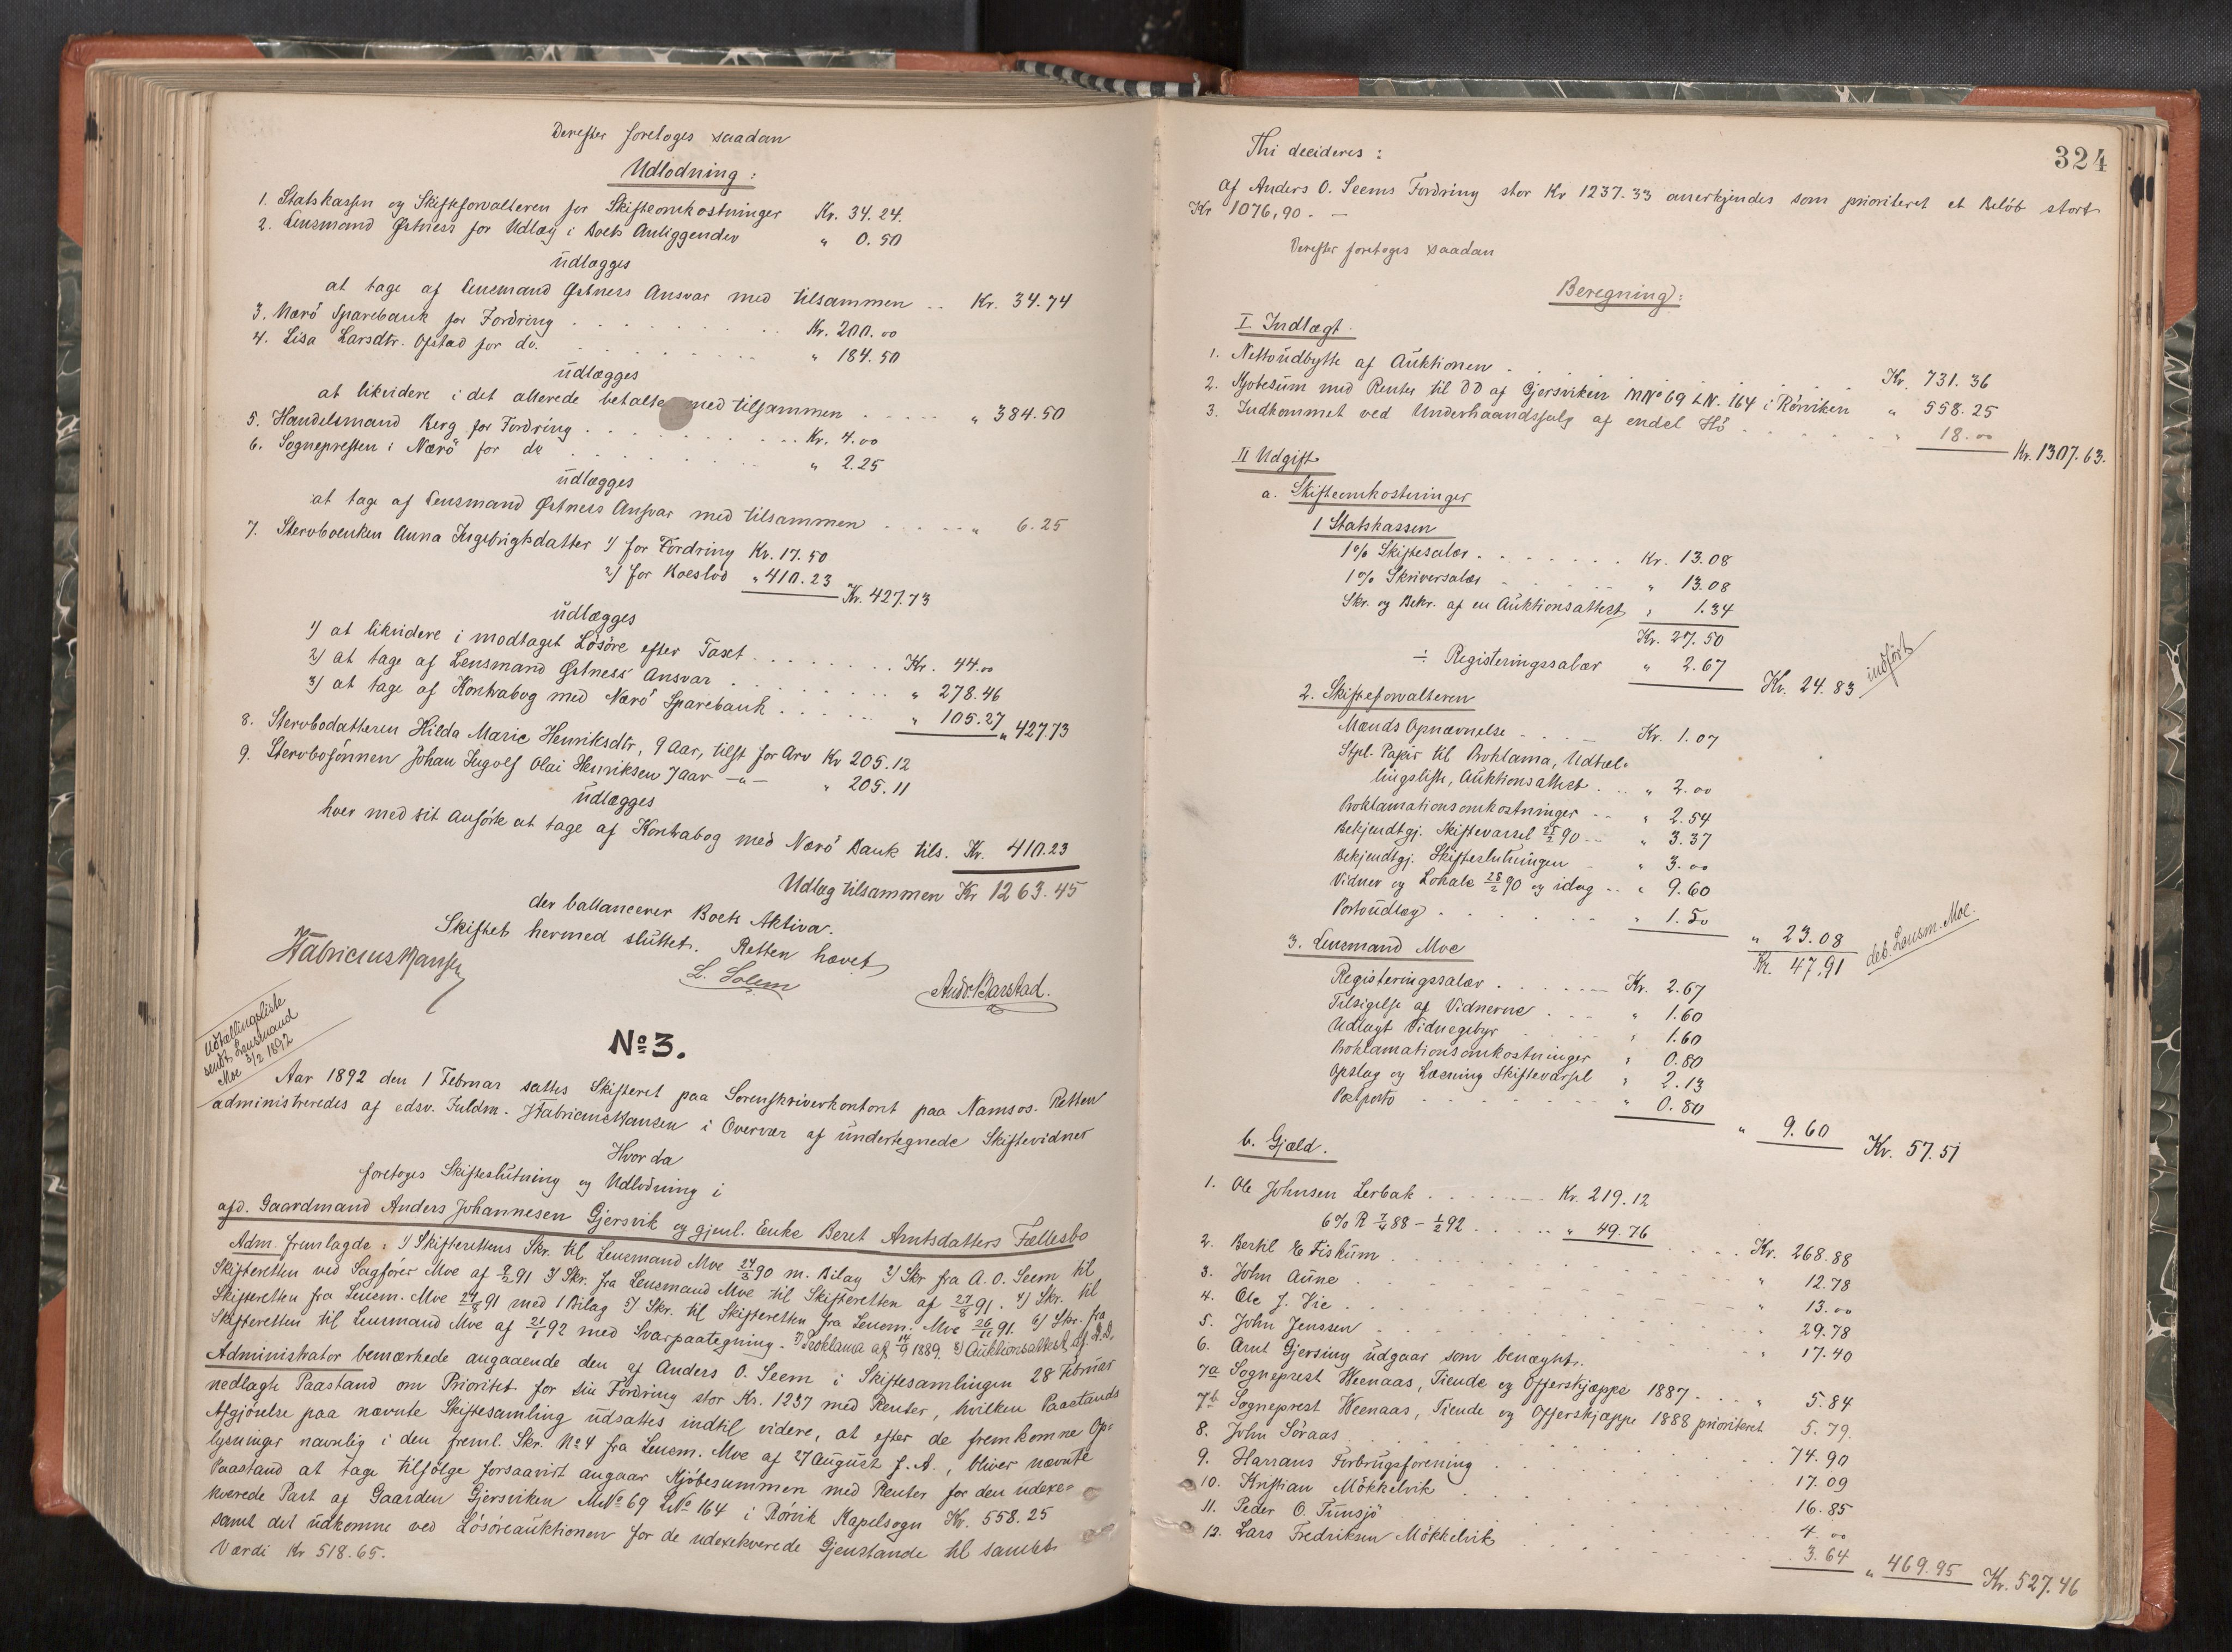 Derefter foretoges saadan
Udlodning:
1. Statskassen og Skifteforvalteren for Skifteomkostninger Kr. 34.24.
2. Lensmand Østness for Udlæg i Boets Anliggender " 0.50
udlægges
at tage af Lensmand Østness Ansvar med tilsammen .. Kr. 34.74
3. Nærö Sparebank for Fordring . . . . . Kr. 200.00
4. Lisa Larsdtr. Opstad for do. . . . . . " 184.50
udlægges
at likvidere i det allerede betalte med tilsammen . . . . . " 384.50
5. Handelsmand Berg for Fordring . . . . . Kr. 4.00
6. Sognepresten i Nærö for do . . . . . " 2.25
udlægges
at tage af Lensmand Østness Ansvar med tilsammen . . . . . " 6.25
7. Stervboenken Anna Ingebrigtsdatter 1) for Fordring Kr. 17.50
2) for Boeslod " 410.23 Kr. 427.73
udlægges
1) at likvidere i modtaget Lösöre efter Taxt . . . . . Kr. 44.00
2) at tage af Lensmand Østness Ansvar . . . . . " 278.46
3) at tage af Kontrabog med Nærö Sparebank . . . . . " 105.27 " 427.73
8. Stervbodatteren Hilda Marie Henriksdtr, 9 Aar, tilst for Arv Kr 205.12
9. Stervbosönnen Johan Ingolf Olai Henriksen 7 Aar -"- " 205.11
udlægges
hver med sit Anförte at tage af Kontrabog med Nærö Bank tils. Kr. 410.23
Udlæg tilsammen Kr 1263.45
der ballancerer Boets Aktiva.
Skiftet hermed sluttet. Retten hævet
HFabriciusHansen L. Solem Andr. Barstad.
Udtællingsliste
sendt Lensmand
Moe 3/2 1892
No 3.
Aar 1892 den 1 Februar sattes Skifteret paa Sorenskriverkontoret paa Namsos. Retten
administreredes af edsv. Fuldm. HFabriciusHansen i Overvær af undertegnede Skiftevidner
Hvorda
foretoges Skifteslutning og Udlodning i
afd. Gaardmand Anders Johannesen Gjersvik og gjenl. Enke Beret Arntsdatters Fællesbo
Adm. fremlagde: 1) Skifterettens Skr. til Lensmand Moe 24/3 90 m. Bilag 2) Skr fra A. O. Seem til
Skifteretten ved Sagförer Moe af 9/2 91 3) Skr. fra Lensmand Moe til Skifteretten af 27/8 91. 4) Skr. til
Skifteretten fra Lensm. Moe 27/8 91 med 1 Bilag 5) Skr. til Skifteretten fra Lensm. Moe 26/11 91. 6) Skr. fra
Skifteretten til Lensmand Moe af 21/1 92 med Svarpaategning. 7) Proklama af 14/9 1889. 8) Auktionsattest af D.D.
Administrator bemærkede angaaende den af Anders O. Seem i Skiftesamlingen 28 Februar
nedlagte Paastand om Prioritet for sin Fordring stor Kr. 1237 med Renter, hvilken Paastands
Afgjörelse paa nævnte Skiftesamling udsattes indtil videre, at efter de fremkomne Op-
lysninger navnlig i den freml. Skr. No 4 fra Lensm. Moe af 27 August f. A., bliver nævnte
Paastand at tage tilfölge forsaavidt angaar Kjöbesummen med Renter for den udexe-
kverede Part af Gaarden Gjersviken MNo 69 LNo 164 i Rörvik Kapelsogn Kr. 558.25
samt det udkomne ved Lösöreauktionen for de udexekverede Gjenstande til samlet
Værdi Kr 518.65.
324
Thi decideres:
Af Anders O. Seems Fordring stor Kr 1237.33 anerkjendes som prioriteret et Belöb stort
Kr 1076,90. —
Derefter foretoges saadan
Beregning:
I Indtægt.
1. Nettoudbytte af Auktionen . . . . . Kr. 731.36
2. Kjøbesum med Renter til DD af Gjersviken MNo 69 LN. 164 i Rörviken " 558.25
3. Indkommet ved Underhaandssalg af endel Hö . . . . . " 18.00 Kr. 1307.63.
II Udgift
a. Skifteomkostninger
1 Statskassen
1% Skiftesalær . . . . . Kr. 13.08
1% Skriversalær . . . . . " 13.08
Skr. og Bekr. af en Auktionsattest " 1.34
Kr. 27.50
÷ Registeringssalær " 2.67 Kr. 24.83 indført
2. Skifteforvalteren
Mænds Opnævnelse . . . . Kr. 1.07
Stpl. Papir til Proklama, Udtæl-
lingsliste, Auktionsattest . . . " 2.00
Proklamationsomkostninger . . " 2.54
Bekjendtgj. Skiftevarsel 25/2 90 . . " 3.37
Bekjendtgj. Skifteslutningen . . " 3.00
Vidner og Lokale 28/2 90 og idag . . " 9.60
Portoudlæg . . . . . " 1.50 " 23.08
Kr. 47,91 deb. Lensm. Moe.
3. Lensmand Moe
Registeringssalær . . . . . Kr. 2.67
Tilsigelse af Vidnerne . . . " 1.60
Udlagt Vidnegebyr . . . " 1.60
Proklamationsomkostninger " 0.80
Opslag og Læsning Skiftevarsel " 2.13
Postporto . . . . . " 0.80 " 9.60 Kr. 57.51
b. Gjæld.
1. Ole Johnsen Lerbak . . . . . Kr. 219.12
6% R 7/4 88 - 1/2 92 . . . . . " 49.76 . . . . Kr. 268.88
2. Bertil E Fiskum . . . . . " 12.78
3. John Aune . . . . . " 13.00
4. Ole J. Vie . . . . . " 29.78
5. John Jenssen . . . . . " 17.40
6. Arnt Gjersing udgaar som benægtet.
7a Sogneprest Weenaas, Tiende og Offerskjæppe 1887 . . . " 5.84
7b Sogneprest Weenaas, Tiende og Offerskjæppe 1888 prioriteret 5.79.
8. John Söraas . . . . . 74.90
9. Harrans Forbrugsforening . . . . . 17.09
10. Kristian Mökkelvik . . . . . 16.85
11. Peder O. Tunsjö . . . . . 4.00
12. Lars Fredriksen Mökkelvik . . . . . 3.64 " 469.95 Kr. 527.46